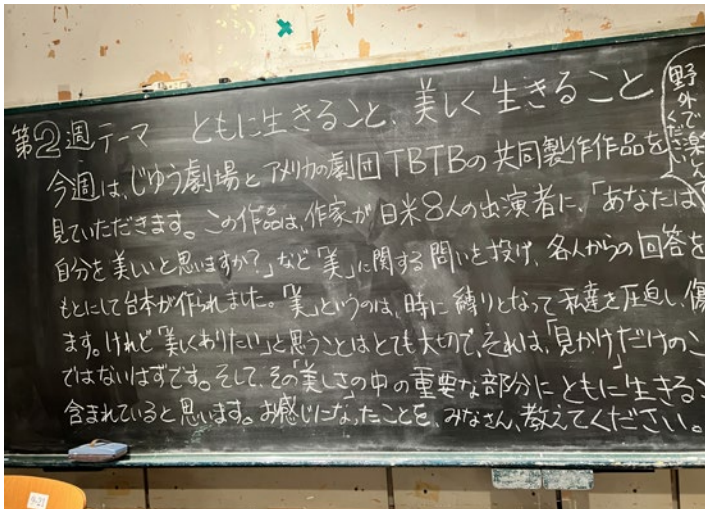 第2週テーマ ともに生きること、美しく生きること
野外で楽しんでください
今週は、じゆう劇場とアメリカの劇団TBTBの共同製作作品を
見ていただきます。この作品は、作家が日米8人の出演者に、「あなたは
自分を美しいと思いますか?」など「美」に関する問いを投げ、各人からの回答を
もとにして台本が作られました。「美」というのは、時に縛りとなって私達を圧迫し、傷
ます。けれど「美しくありたい」と思うことはとても大切で、それは、「見かけ」だけのこ
ではないはずです。そして、その「美しさ」の中の重要な部分にともに生きるこ
含まれていると思います。お感じになったことを、みなさん、教えてください。